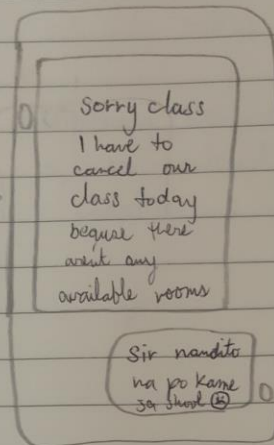 Sorry class
I have to
cancel our
class today
bequse there
arent any
available rooms
Sir nandito
na po kame
sa skool